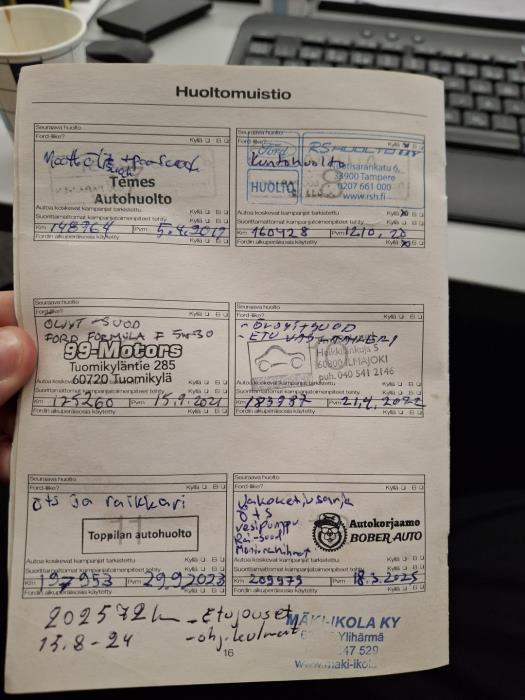 Huoltomuistio
Seuraava huolto
Ford-liike? Kyllä Ei
Temes
Autohuolto
Autoa koskevat kampanjat tarkistettu Kyllä Ei
Suorittamattomat kampanjatoimenpiteet tehty Kyllä Ei
Km 148764 Pvm 5.4.2019
Fordin alkuperäisosia käytetty Kyllä Ei
Seuraava huolto
Ford-liike? Kyllä Ei
Ford RS-HUOLTO OY
Kuntohuolto
HUOLTO
33900 Tampere
0207 661 000
www.rsh.fi
Autoa koskevat kampanjat tarkistettu Kyllä Ei
Suorittamattomat kampanjatoimenpiteet tehty Kyllä Ei
Km 160428 Pvm 12.10.20
Fordin alkuperäisosia käytetty Kyllä Ei
Seuraava huolto
Ford-liike? Kyllä Ei
ÖLJYT-SUOD
FORD FORMULA F 5W30
99-Motors
Tuomikyläntie 285
60720 Tuomikylä
Km 175260 Pvm 15.9.2021
Fordin alkuperäisosia käytetty Kyllä Ei
Seuraava huolto
Ford-liike? Kyllä Ei
- ÖLJYT+SUOD
- ETU
60800 ILMAJOKI
puh. 040 541 2146
Autoa koskevat kampanjat tarkistettu Kyllä Ei
Suorittamattomat kampanjatoimenpiteet tehty Kyllä Ei
Km 183987 Pvm 21.4.2022
Fordin alkuperäisosia käytetty Kyllä Ei
Seuraava huolto
Ford-liike? Kyllä Ei
öts ja raikkari
Toppilan autohuolto
Autoa koskevat kampanjat tarkistettu Kyllä Ei
Suorittamattomat kampanjatoimenpiteet tehty Kyllä Ei
Km 197953 Pvm 29.9.2023
Fordin alkuperäisosia käytetty Kyllä Ei
Seuraava huolto
Ford-liike? Kyllä Ei
Jakoketjusarja
öts
vesipumppu
Rai-suod
Moniurahihnat
Autokorjaamo
BOBER AUTO
Autoa koskevat kampanjat tarkistettu Kyllä Ei
Suorittamattomat kampanjatoimenpiteet tehty Kyllä Ei
Km 209979 Pvm 18.3.2025
Fordin alkuperäisosia käytetty Kyllä Ei
202572km - Etujouset
13.8-24
MÄKI-IKOLA KY
Ylihärmä
47 529
16